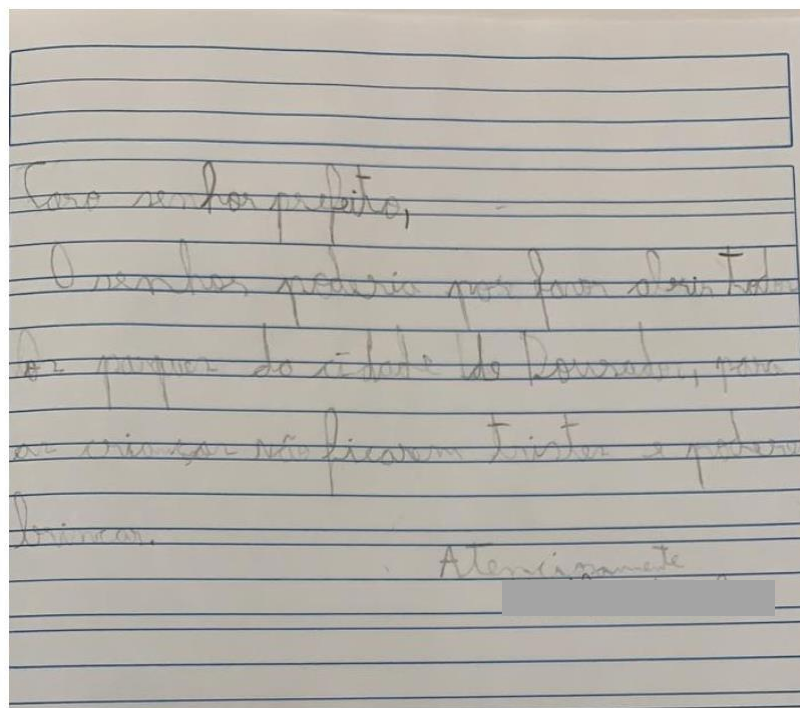 Caro senhor prefeito,
O senhor poderia por favor abrir todos
os parques da cidade de Dourados, para
as crianças não ficarem tristes e poderem
brincar.
Atencionamente